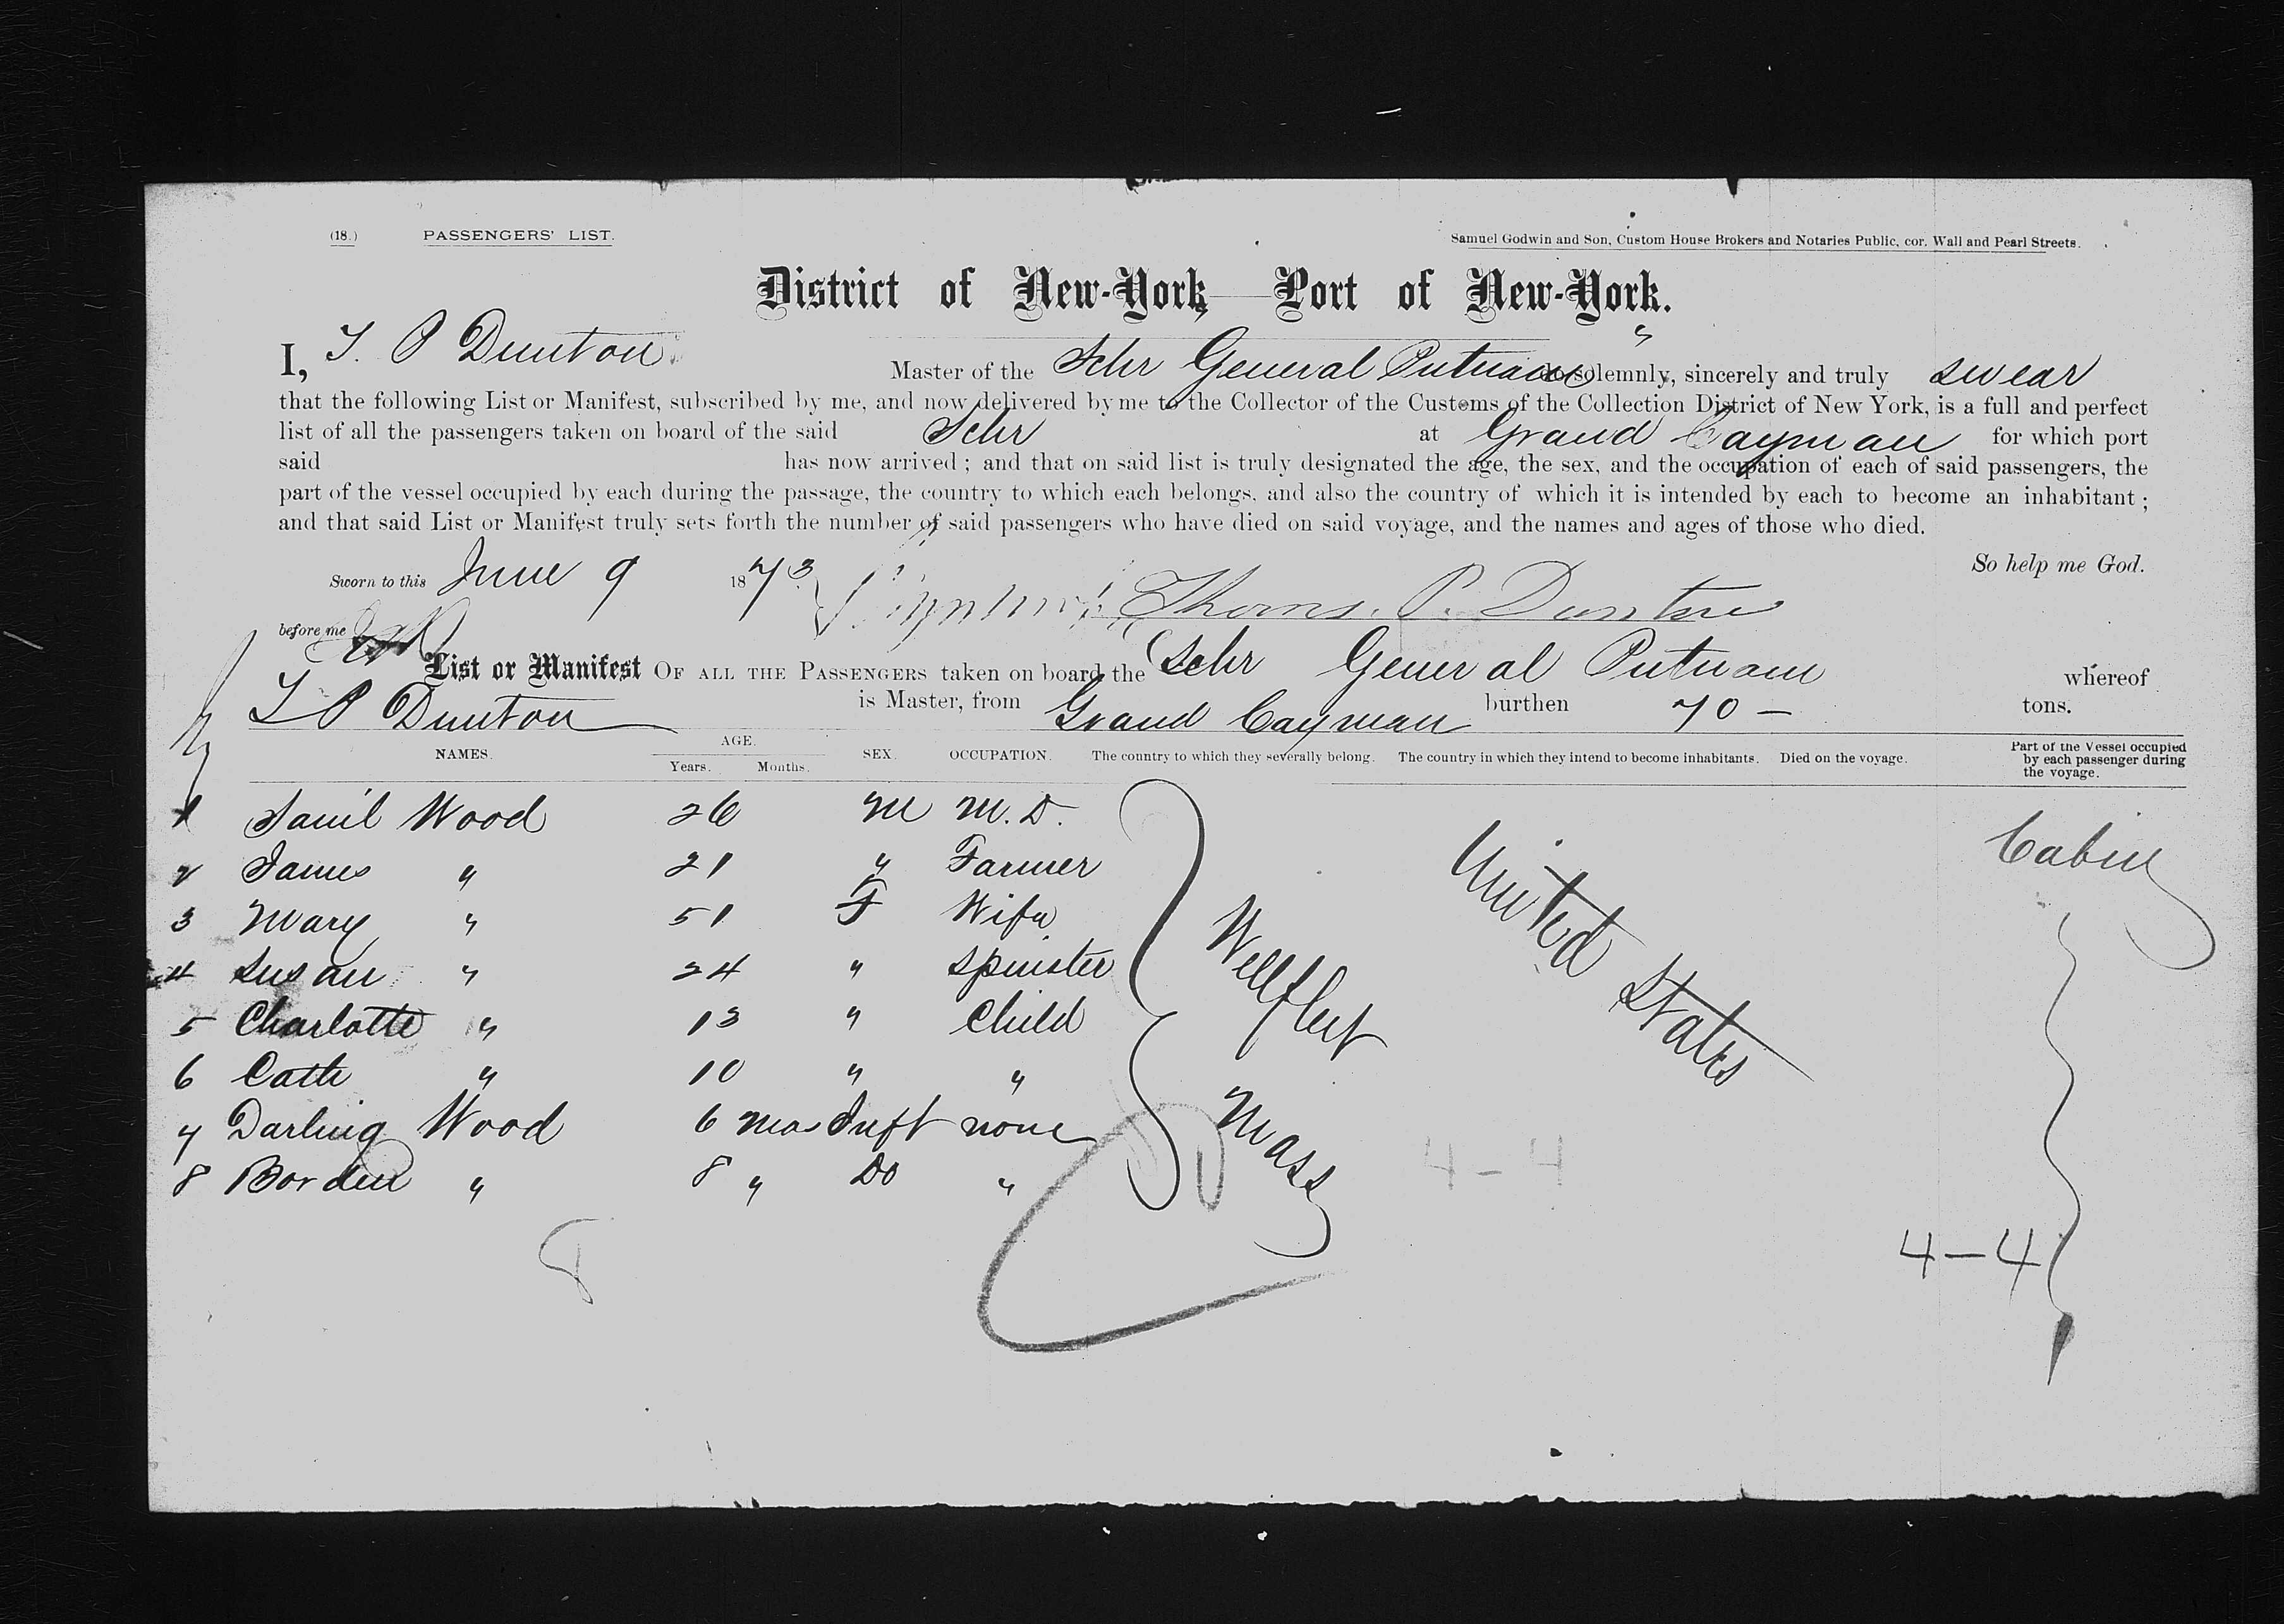 (18.) PASSENGERS' LIST. Samuel Godwin and Son, Custom House Brokers and Notaries Public, cor. Wall and Pearl Streets.
District of New-York, Port of New-York.
I, T. P Dunton Master of the Schr General Putnam do solemnly, sincerely and truly swear
that the following List or Manifest, subscribed by me, and now delivered by me to the Collector of the Customs of the Collection District of New York, is a full and perfect
list of all the passengers taken on board of the said Schr at Grand Cayman for which port
said has now arrived; and that on said list is truly designated the age, the sex, and the occupation of each of said passengers, the
part of the vessel occupied by each during the passage, the country to which each belongs, and also the country of which it is intended by each to become an inhabitant;
and that said List or Manifest truly sets forth the number of said passengers who have died on said voyage, and the names and ages of those who died.
So help me God.
Sworn to this June 9 1873 Thoms. P. Dunton
before me
List or Manifest OF ALL THE PASSENGERS taken on board the Schr General Putnam whereof
T P Dunton is Master, from Grand Cayman burthen 70 — tons.
NAMES. AGE. Years. Months. SEX. OCCUPATION. The country to which they severally belong. The country in which they intend to become inhabitants. Died on the voyage. Part of the Vessel occupied by each passenger during the voyage.
1 Saml Wood 26 M M. D. Cabin
2 James " 21 " Farmer
3 Mary " 51 F Wife
4 Susan " 24 " Spinster
5 Charlotte " 13 " Child
6 Cath " 10 " "
7 Darling Wood 6 mos Inft none
8 Borden " 8 " Do "
Wellfleet Mass
United States
4-4
4-4
8